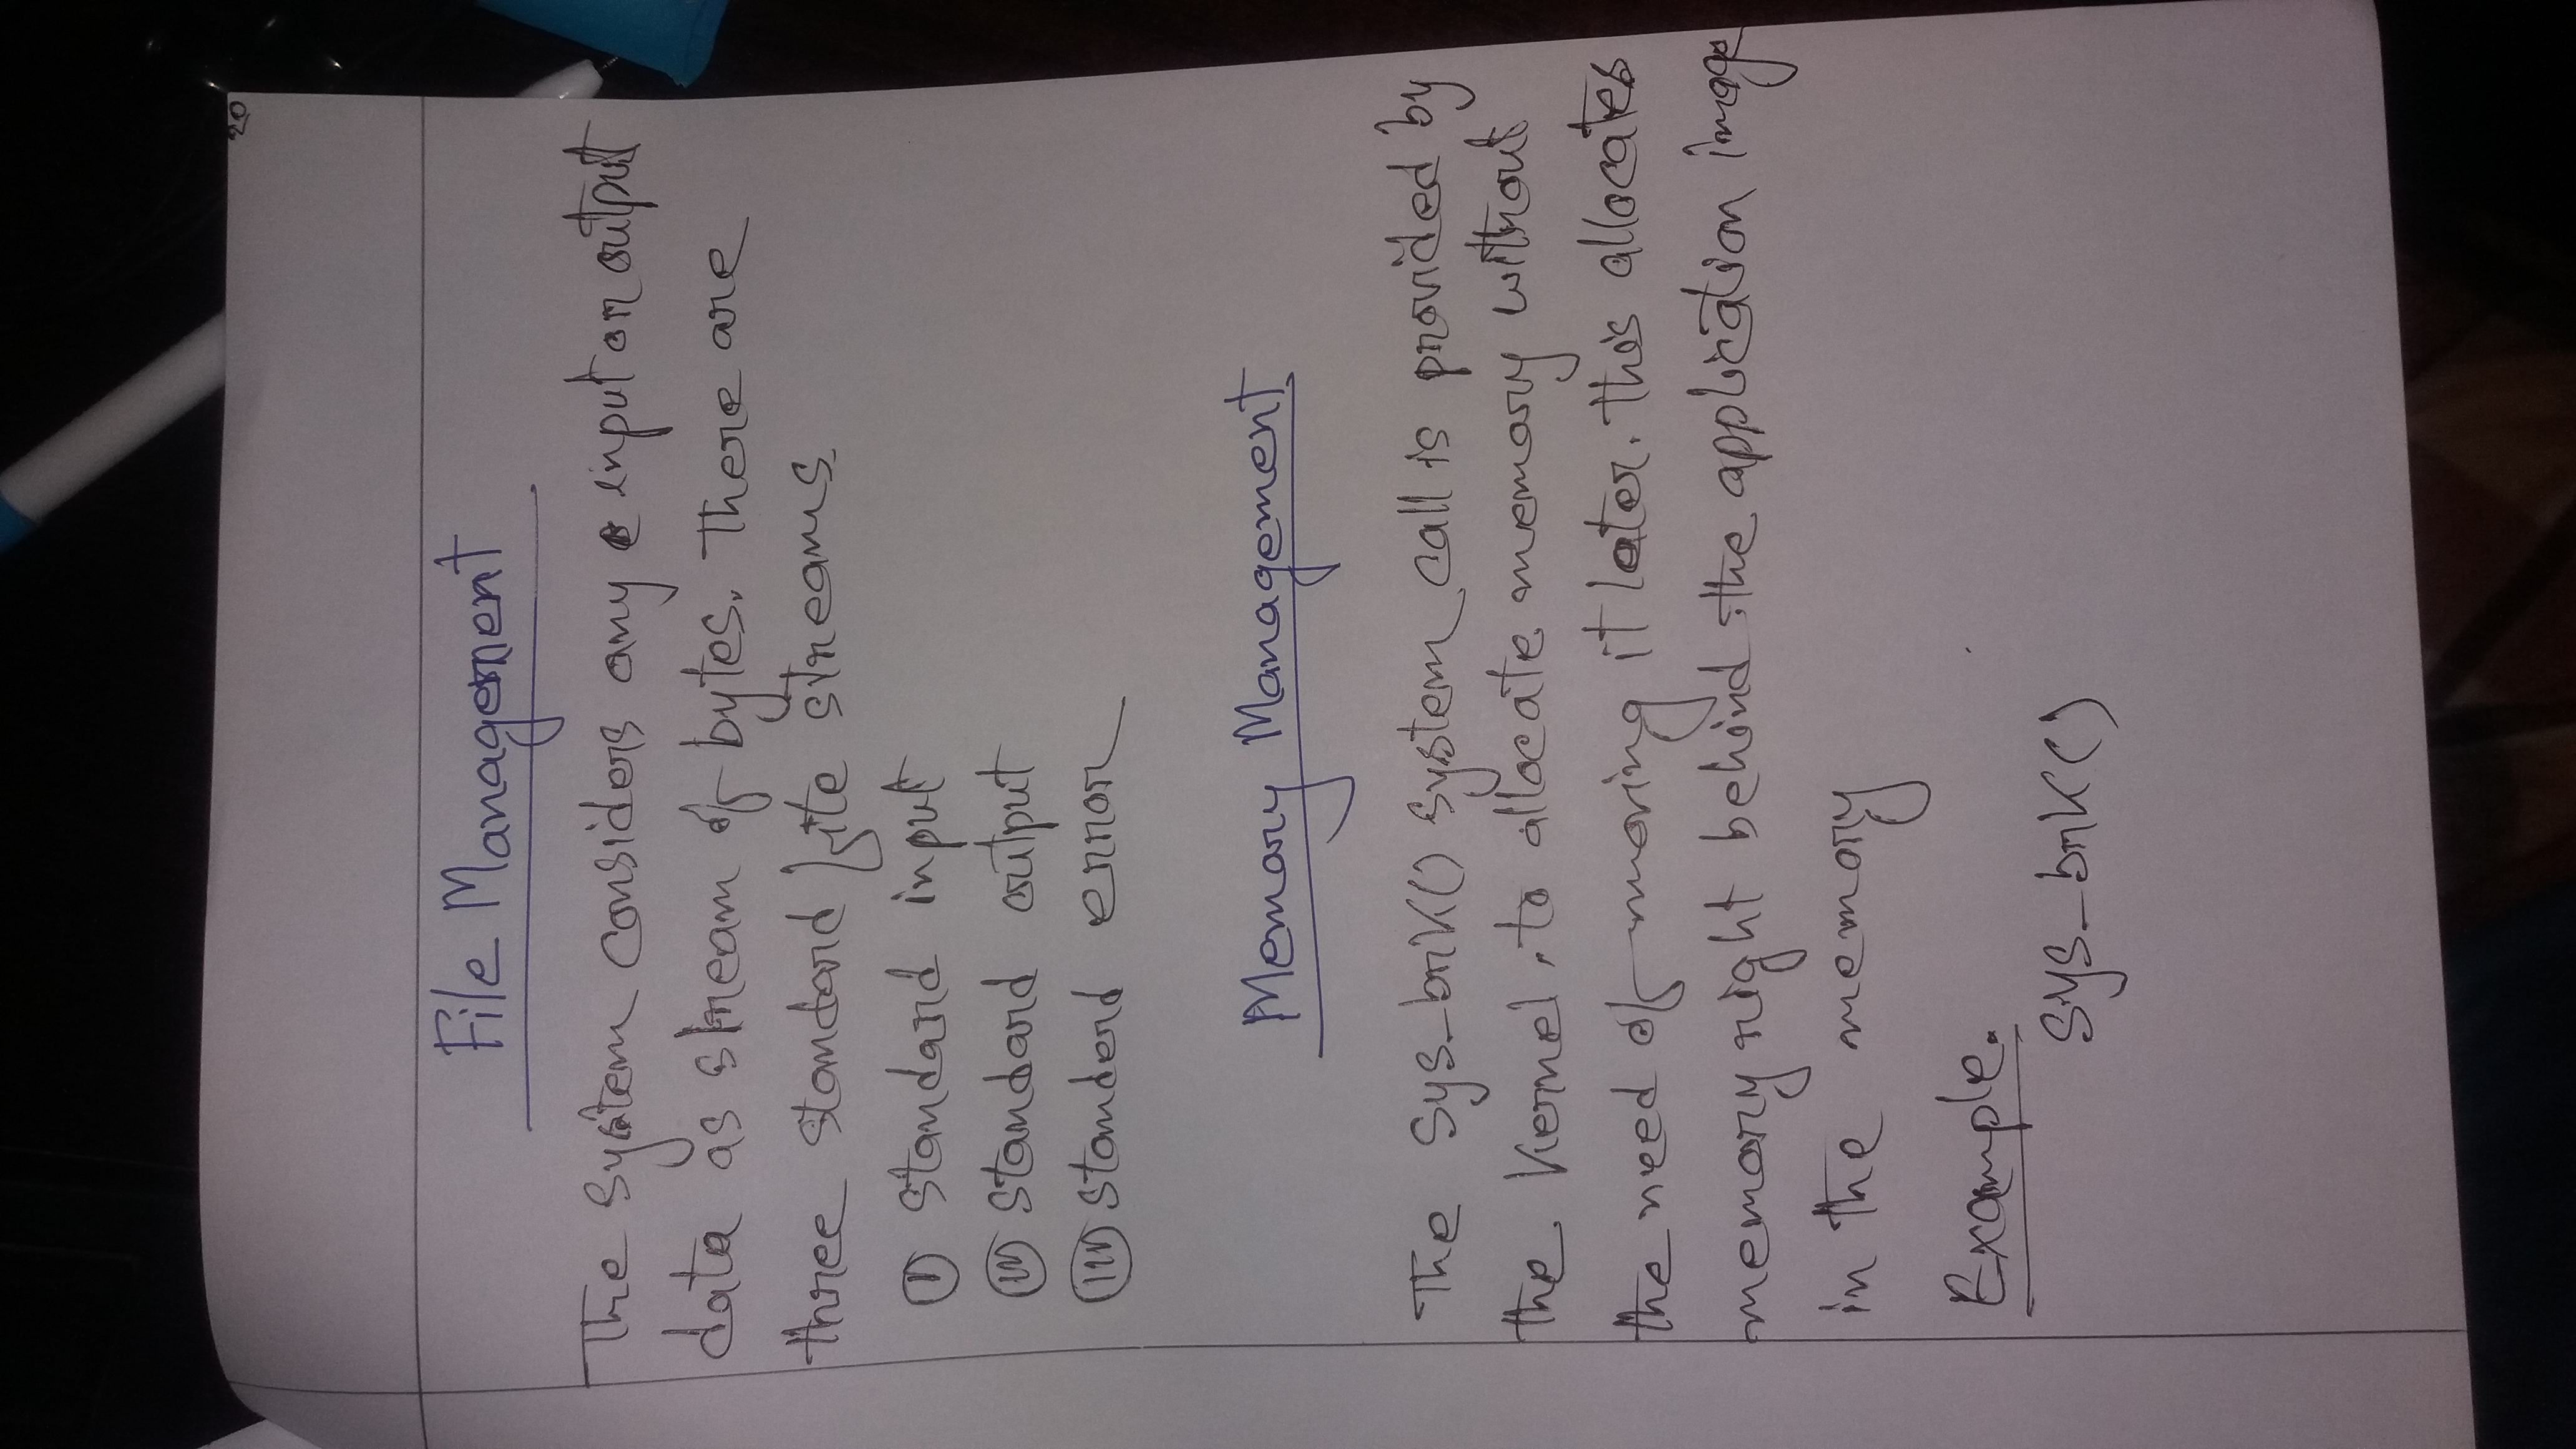 20
File Management
The system considers any input or output
data as stream of bytes. There are
three standard file streams.
(i) Standard input
(ii) Standard output
(iii) Standerd error
Memory Management
The sys_brk() system call is provided by
the Kernel, to allocate memory without
the need of moving it later. this allocates
memory right behind the application image
in the memory
Example.
sys_brk()